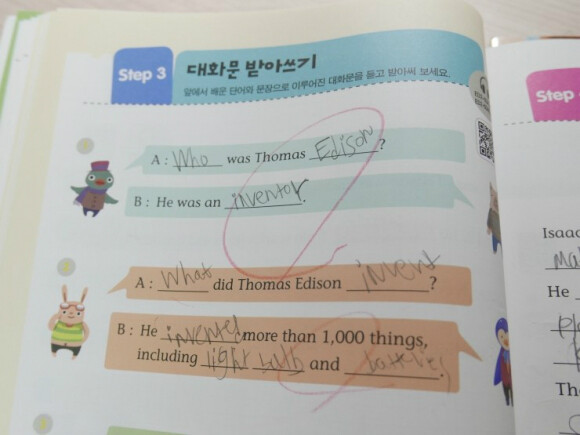 Step 3
대화문 받아쓰기
앞에서 배운 단어와 문장으로 이루어진 대화문을 듣고 받아써 보세요.
Step
A : Who was Thomas Edison?
B : He was an inventor.
A : What did Thomas Edison invent?
B : He invented more than 1,000 things,
including light bulb and
Isaac
He